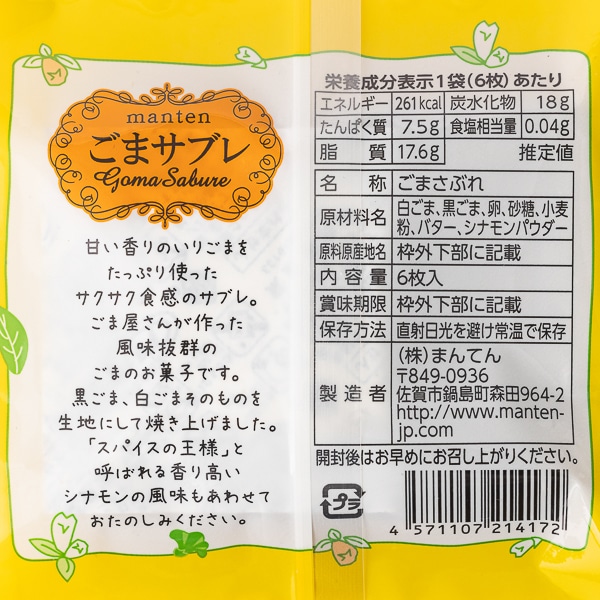 manten
ごまサブレ
Goma Sabure
甘い香りのいりごまを
たっぷり使った
サクサク食感のサブレ。
ごま屋さんが作った
風味抜群の
ごまのお菓子です。
黒ごま、白ごまそのものを
生地にして焼き上げました。
「スパイスの王様」と
呼ばれる香り高い
シナモンの風味もあわせて
おたのしみください。
栄養成分表示1袋(6枚)あたり
エネルギー 261kcal 炭水化物 18g
たんぱく質 7.5g 食塩相当量 0.04g
脂質 17.6g 推定値
名称 ごまさぶれ
原材料名 白ごま、黒ごま、卵、砂糖、小麦
粉、バター、シナモンパウダー
原料原産地名 枠外下部に記載
内容量 6枚入
賞味期限 枠外下部に記載
保存方法 直射日光を避け常温で保存
製造者 (株)まんてん
〒849-0936
佐賀市鍋島町森田964-2
http://www.manten-
jp.com
開封後はお早めにお召し上がりください。
プラ
4 571107 214172